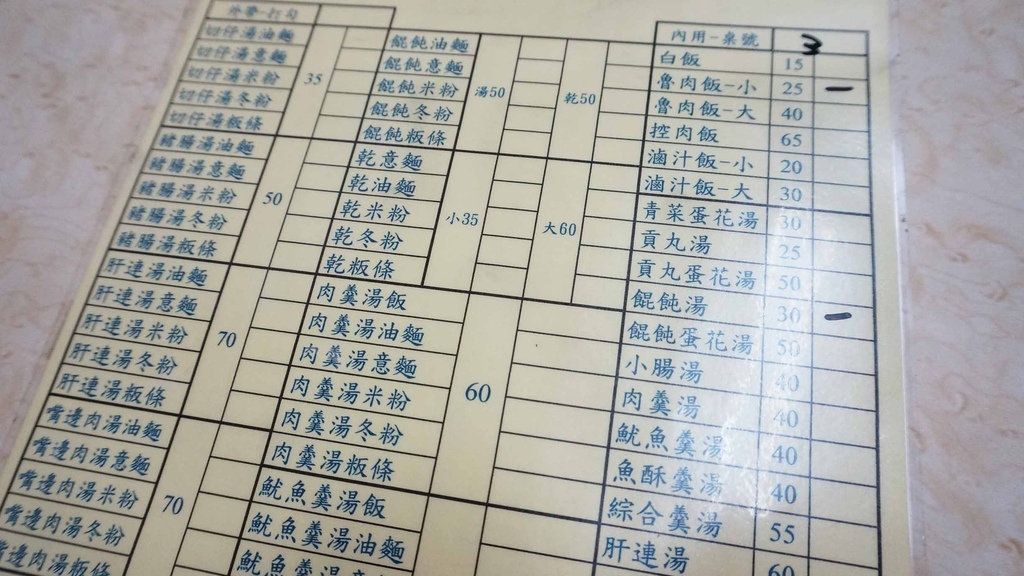 外帶-打勾
切仔湯油麵
切仔湯意麵
切仔湯米粉
切仔湯冬粉
切仔湯粄條
35
豬腸湯油麵
豬腸湯意麵
豬腸湯米粉
豬腸湯冬粉
豬腸湯粄條
50
肝連湯油麵
肝連湯意麵
肝連湯米粉
肝連湯冬粉
肝連湯粄條
70
嘴邊肉湯油麵
嘴邊肉湯意麵
嘴邊肉湯米粉
嘴邊肉湯冬粉
嘴邊肉湯粄條
70
餛飩油麵
餛飩意麵
餛飩米粉
餛飩冬粉
餛飩粄條
湯50
乾50
乾意麵
乾油麵
乾米粉
乾冬粉
乾粄條
小35
大60
肉羹湯飯
肉羹湯油麵
肉羹湯意麵
肉羹湯米粉
肉羹湯冬粉
肉羹湯粄條
60
魷魚羹湯飯
魷魚羹湯油麵
魷魚羹湯意麵
內用-桌號 3
白飯 15
魯肉飯-小 25 一
魯肉飯-大 40
控肉飯 65
滷汁飯-小 20
滷汁飯-大 30
青菜蛋花湯 30
貢丸湯 25
貢丸蛋花湯 50
餛飩湯 30 一
餛飩蛋花湯 50
小腸湯 40
肉羹湯 40
魷魚羹湯 40
魚酥羹湯 40
綜合羹湯 55
肝連湯 60